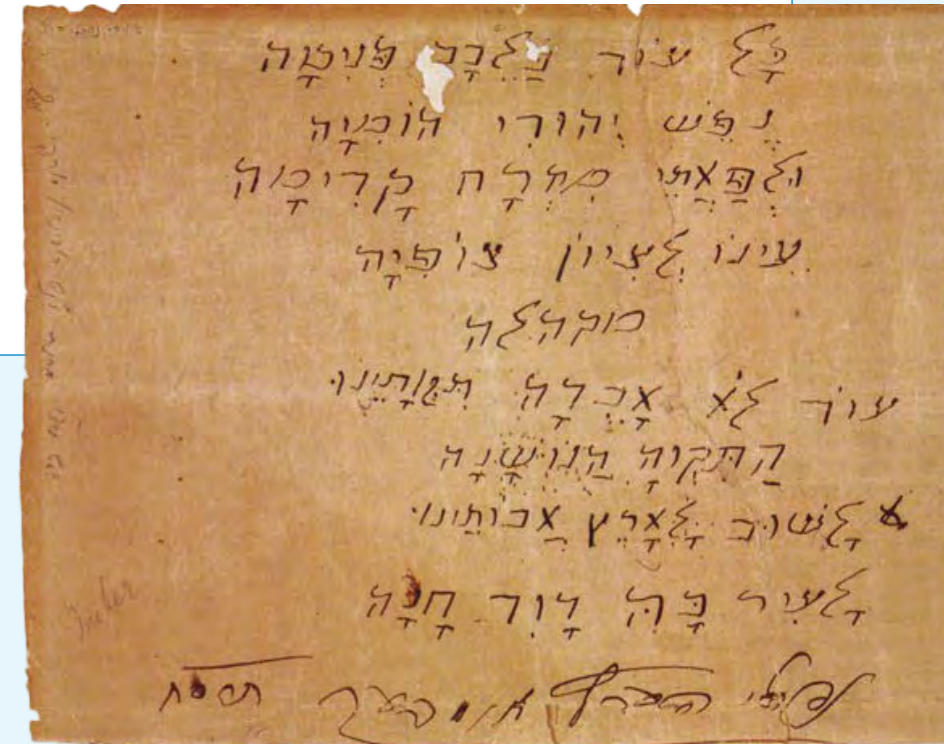 כָּל עוֹד בַּלֵּבָב פְּנִימָה
נֶפֶשׁ יְהוּדִי הוֹמִיָּה
וּלְפַאֲתֵי מִזְרָח קָדִימָה
עֵינוֹ לְצִיּוֹן צוֹפִיָּה
מקהלה
עוֹד לֹא אָבְדָה תִּקְוָתֵינוּ
הַתִּקְוָה הַנּוֹשָׁנָה
לָשׁוּב לְאֶרֶץ אֲבוֹתֵינוּ
לָעִיר בָּהּ דָּוִד חָנָה
נפתלי הערץ אימבער תרסח
Imber